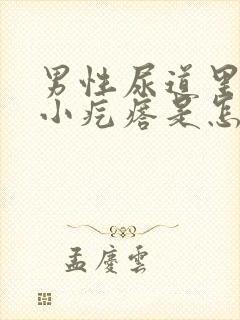 男性尿道里
小疙瘩是怎
孟慶雲